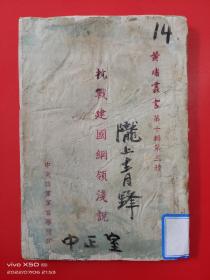 14
黄埔叢書第十輯第二種
抗戰建國綱領淺說
隴上青鋒
中正室
中央陸軍軍官學校印
vivo X50 | ZEISS
2022/07/06 21:53